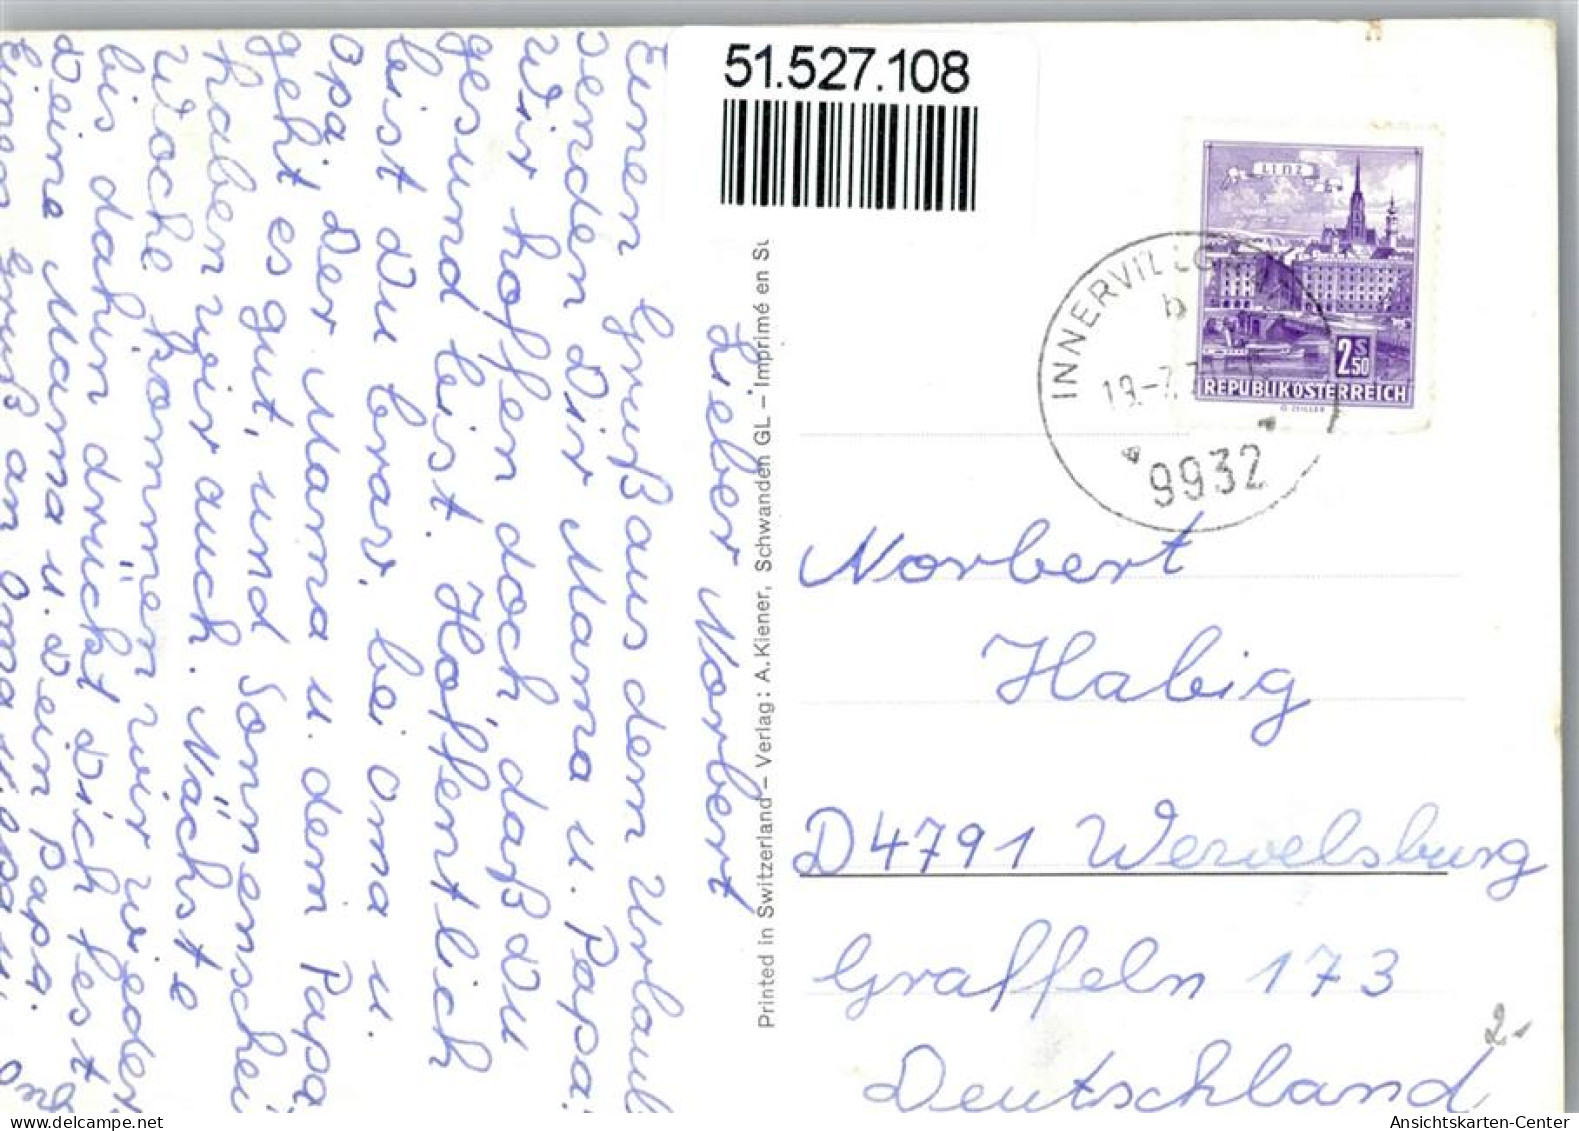 51.527.108
LINZ
2S50
REPUBLIK ÖSTERREICH
INNERVILLG
b
19.-7.7
9932
Lieber Norbert
Einen Gruß aus dem Urlaub
senden Dir Mama u. Papa.
Wir hoffen doch, daß Du
gesund bist. Hoffentlich
bist Du brav, bei Oma u.
Opa. Der Mama u. dem Papa
geht es gut, und Sonnenschei
haben wir auch. Nächste
Woche kommen wir wieder,
bis dahin drückt Dich fest
Deine Mama u. Dein Papa.
Einen Gruß an Oma u. Opa u.
Printed in Switzerland – Verlag: A. Kiener, Schwanden GL – Imprimé en Su
Norbert
Habig
D4791 Wewelsburg
Graffeln 173
Deutschland
2.-
Ansichtskarten-Center
www.delcampe.net